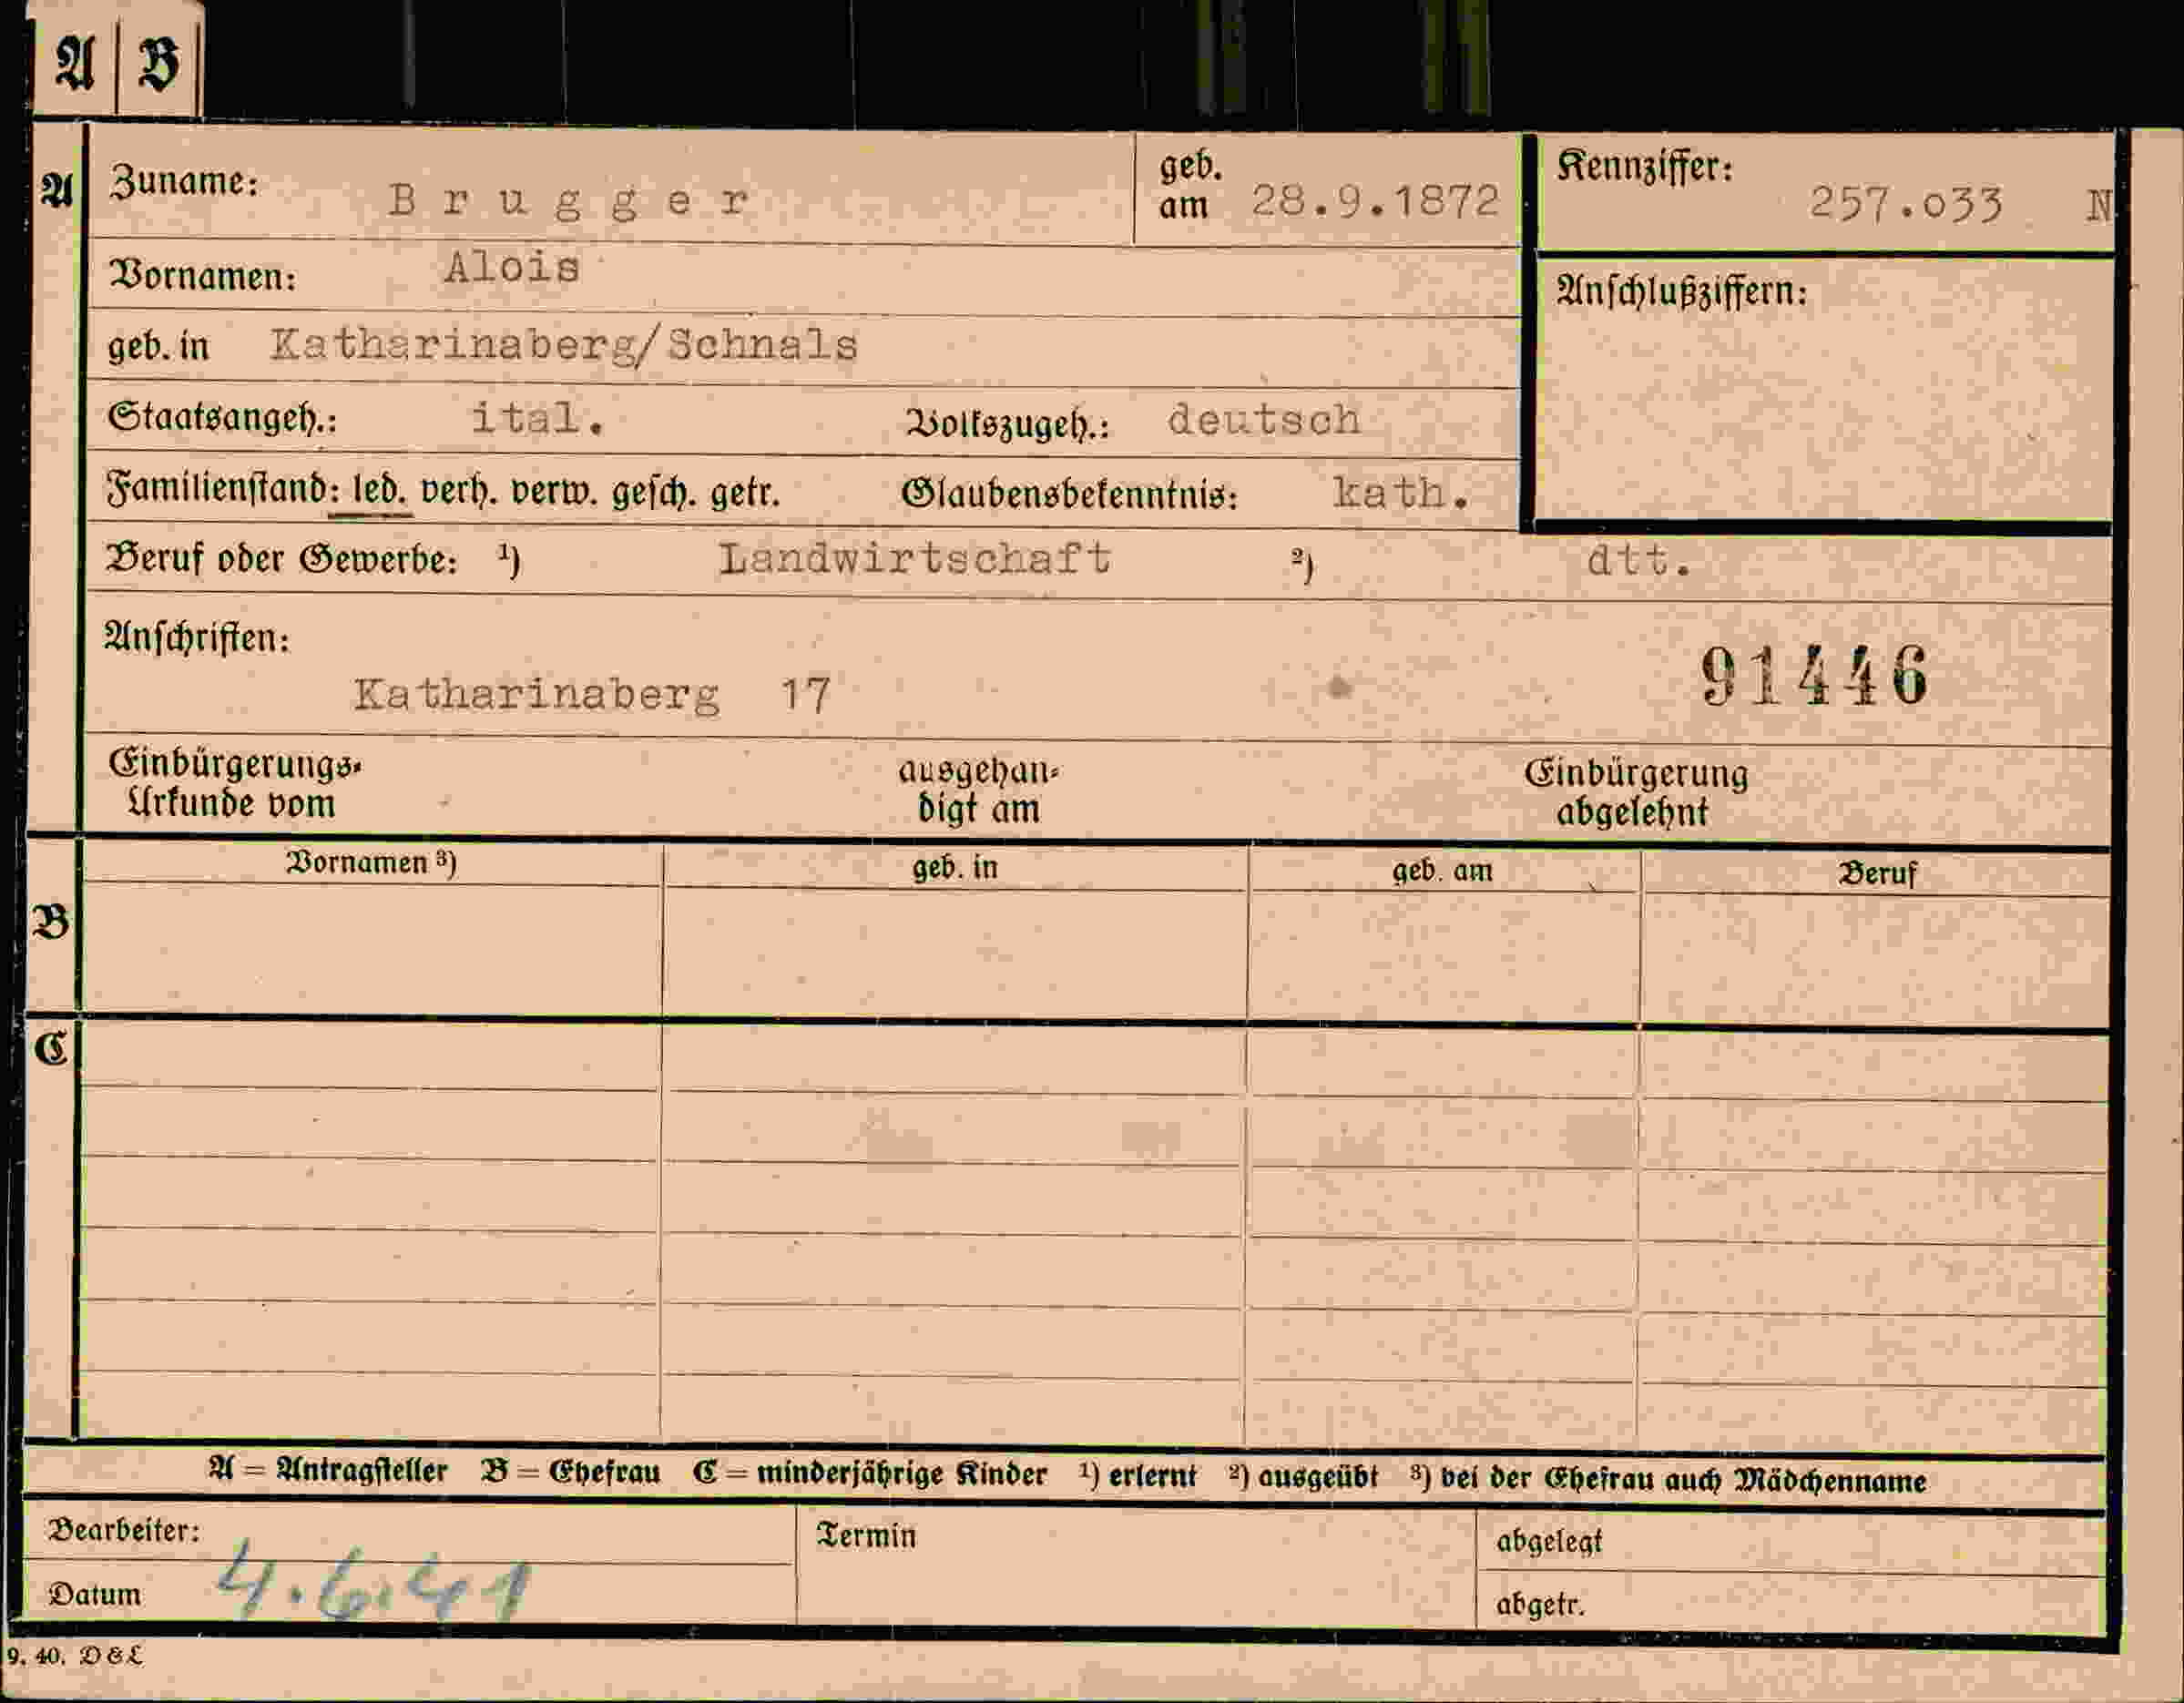 A B
A Zuname: Brugger geb. am 28.9.1872 Kennziffer: 257.033 N
Vornamen: Alois
Anschlußziffern:
geb. in Katharinaberg/Schnals
Staatsangeh.: ital. Volkszugeh.: deutsch
Familienstand: led. verh. verw. gesch. getr. Glaubensbekenntnis: kath.
Beruf oder Gewerbe: ¹) Landwirtschaft ²) dtt.
Anschriften:
Katharinaberg 17 91446
Einbürgerungs- ausgehän- Einbürgerung
Urkunde vom digt am abgelehnt
Vornamen ³) geb. in geb. am Beruf
B
C
A = Antragsteller B = Ehefrau C = minderjährige Kinder ¹) erlernt ²) ausgeübt ³) bei der Ehefrau auch Mädchenname
Bearbeiter: Termin abgelegt
Datum 4.6.41 abgetr.
9. 40. D & L